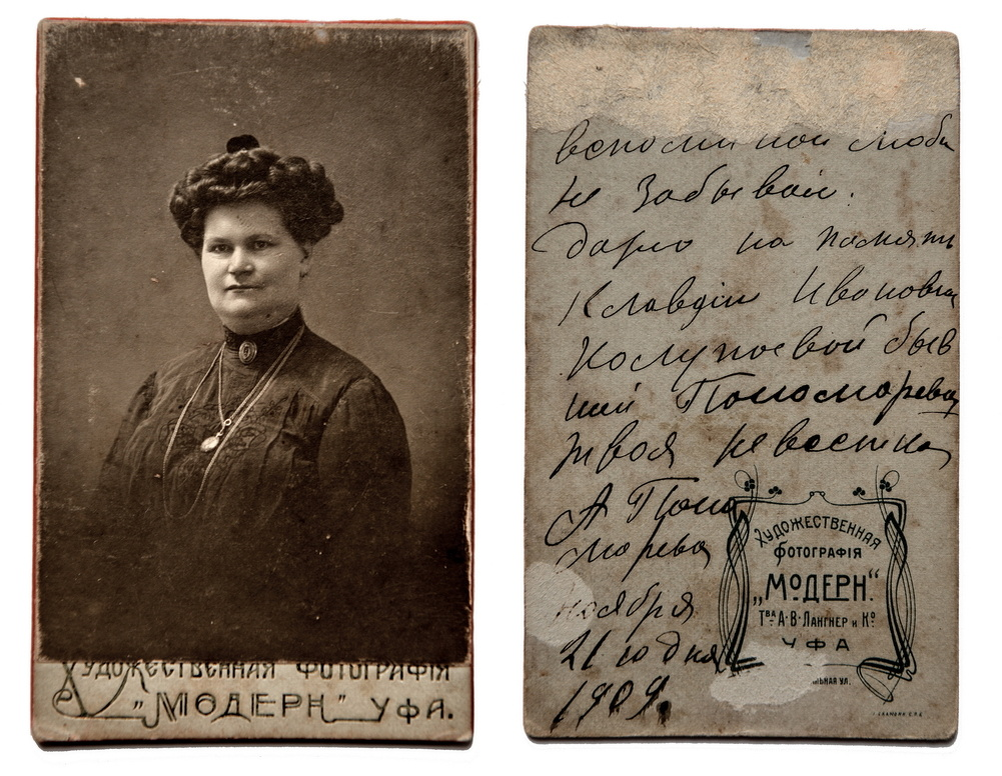 Художественная фотографія
„Модерн" Уфа.
вспоминай люби
не забывай.
дарю на память
Клавдіи Ивановны
быв
шей Пономарева
твоя невестка
А Поно
марева
ноября
21 го дня
1909.
Художественная
фотографія
„Модерн."
Тва А. В. Лангнер и Ко
УФА
льная ул.